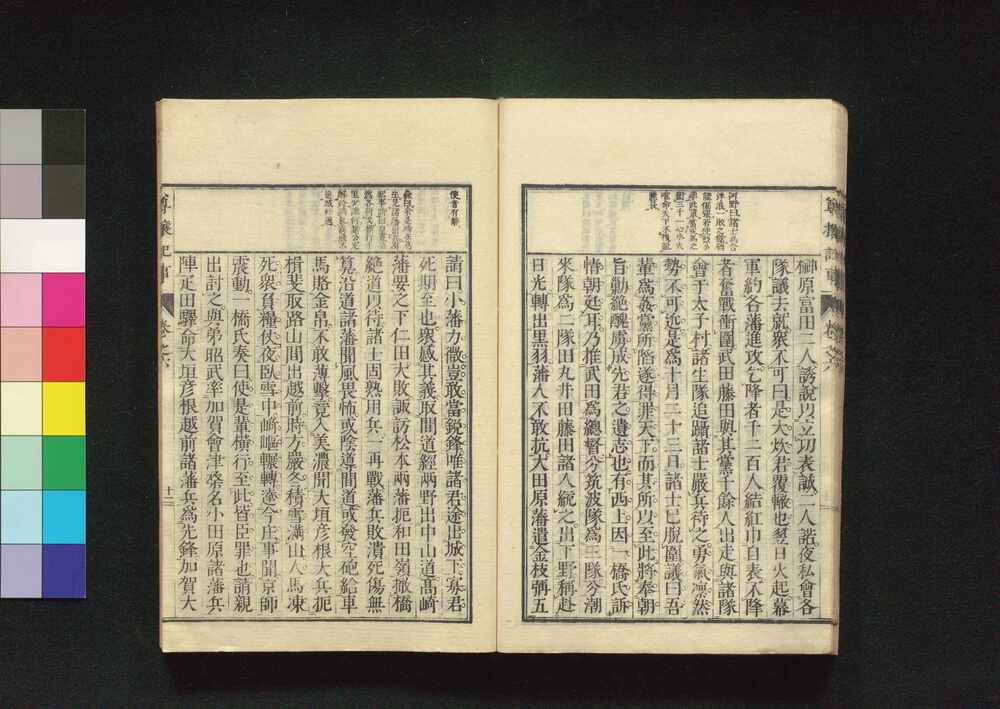 榊原富田二人誘說以立功表誠二人詣夜私會各
隊議去就衆不可曰是大炊君覆轍也翌日火起幕
軍約各藩進攻乞降者千二百人結紅巾自表不降
者奮戰衝圍武田藤田與其黨千餘人出走與諸隊
會于太子村諸生隊追躡諸士嚴兵待之勇氣凛然
勢不可近是爲十月二十三日諸士已脫圍議曰吾
輩爲姦黨所陷遂得罪天下而其所以至此將奉朝
旨勤絶醜虜成先君之遺志也有西上因一橋氏訴
情朝廷耳乃推武田爲總督分筑波隊爲三隊分潮
來隊爲二隊田丸井田藤田諸人統之出下野稱赴
日光轉出黒羽藩人不敢抗大田原藩遣金枝彌五
尊攘紀事
卷之六
使者有辭
請曰小藩力微豈敢當銳鋒唯諸君途出城下寡君
死期至也衆感其義取間道經兩野出中山道高崎
藩要之下仁田大敗諏訪松本兩藩扼和田嶺撤橋
絶道以待諸士固熟用兵一再戰藩兵敗潰死傷無
筭沿道諸藩聞風畏怖或陰導間道或發空砲給車
馬賂金帛不敢薄擊竟入美濃聞大垣彦根大兵扼
揖斐取路山間出越前時方嚴冬積雪滿山人馬凍
死衆負糧伕夜臥雪中崎嶇輾轉塗今庄事聞京師
震動一橋氏奏曰使是輩橫行至此皆臣罪也請親
出討之與弟昭武率加賀會津桑名小田原諸藩兵
陣疋田驛命大垣彦根越前諸藩兵爲先鋒加賀大
十二